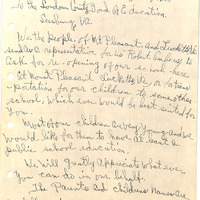 To the Loudoun County Board of Education.
Leesburg Va.
We the people of Mt Pleasant and Lucketts
send as a representative for us Robert
ask for re-opening of our school here
at Mount Pleasant Lucketts Va. or
portation for our children to some other
school, which ever would be best suited for
you.
Most of our children are very young and we
would like for them to have at least a
public school education.
We will gently appreciate what ever
you can do in our behalf.
The Parents and childrens Names are